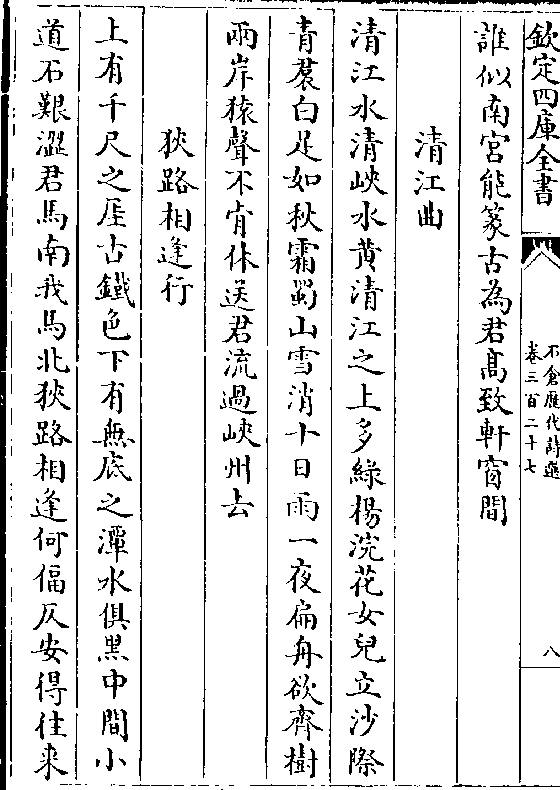 欽定四庫全書
石倉歷代詩選
卷三百二十七
八
誰似南宮能篆古為君髙致軒窗間
清江曲
清江水清峽水黄清江之上多緑楊浣花女兒立沙際
青裠白足如秋霜蜀山雪消十日雨一夜扁舟欲齊樹
兩岸猿聲不肯休送君流過峽州去
狹路相逢行
上有千尺之厓古鐵色下有無底之潭水俱黒中間小
道石艱澀君馬南我馬北狹路相逢何偪仄安得往來